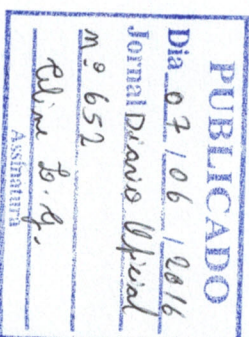 PUBLICADO
Dia 07 / 06 / 2016
Jornal Diário Oficial
Nº 652
Assinatura